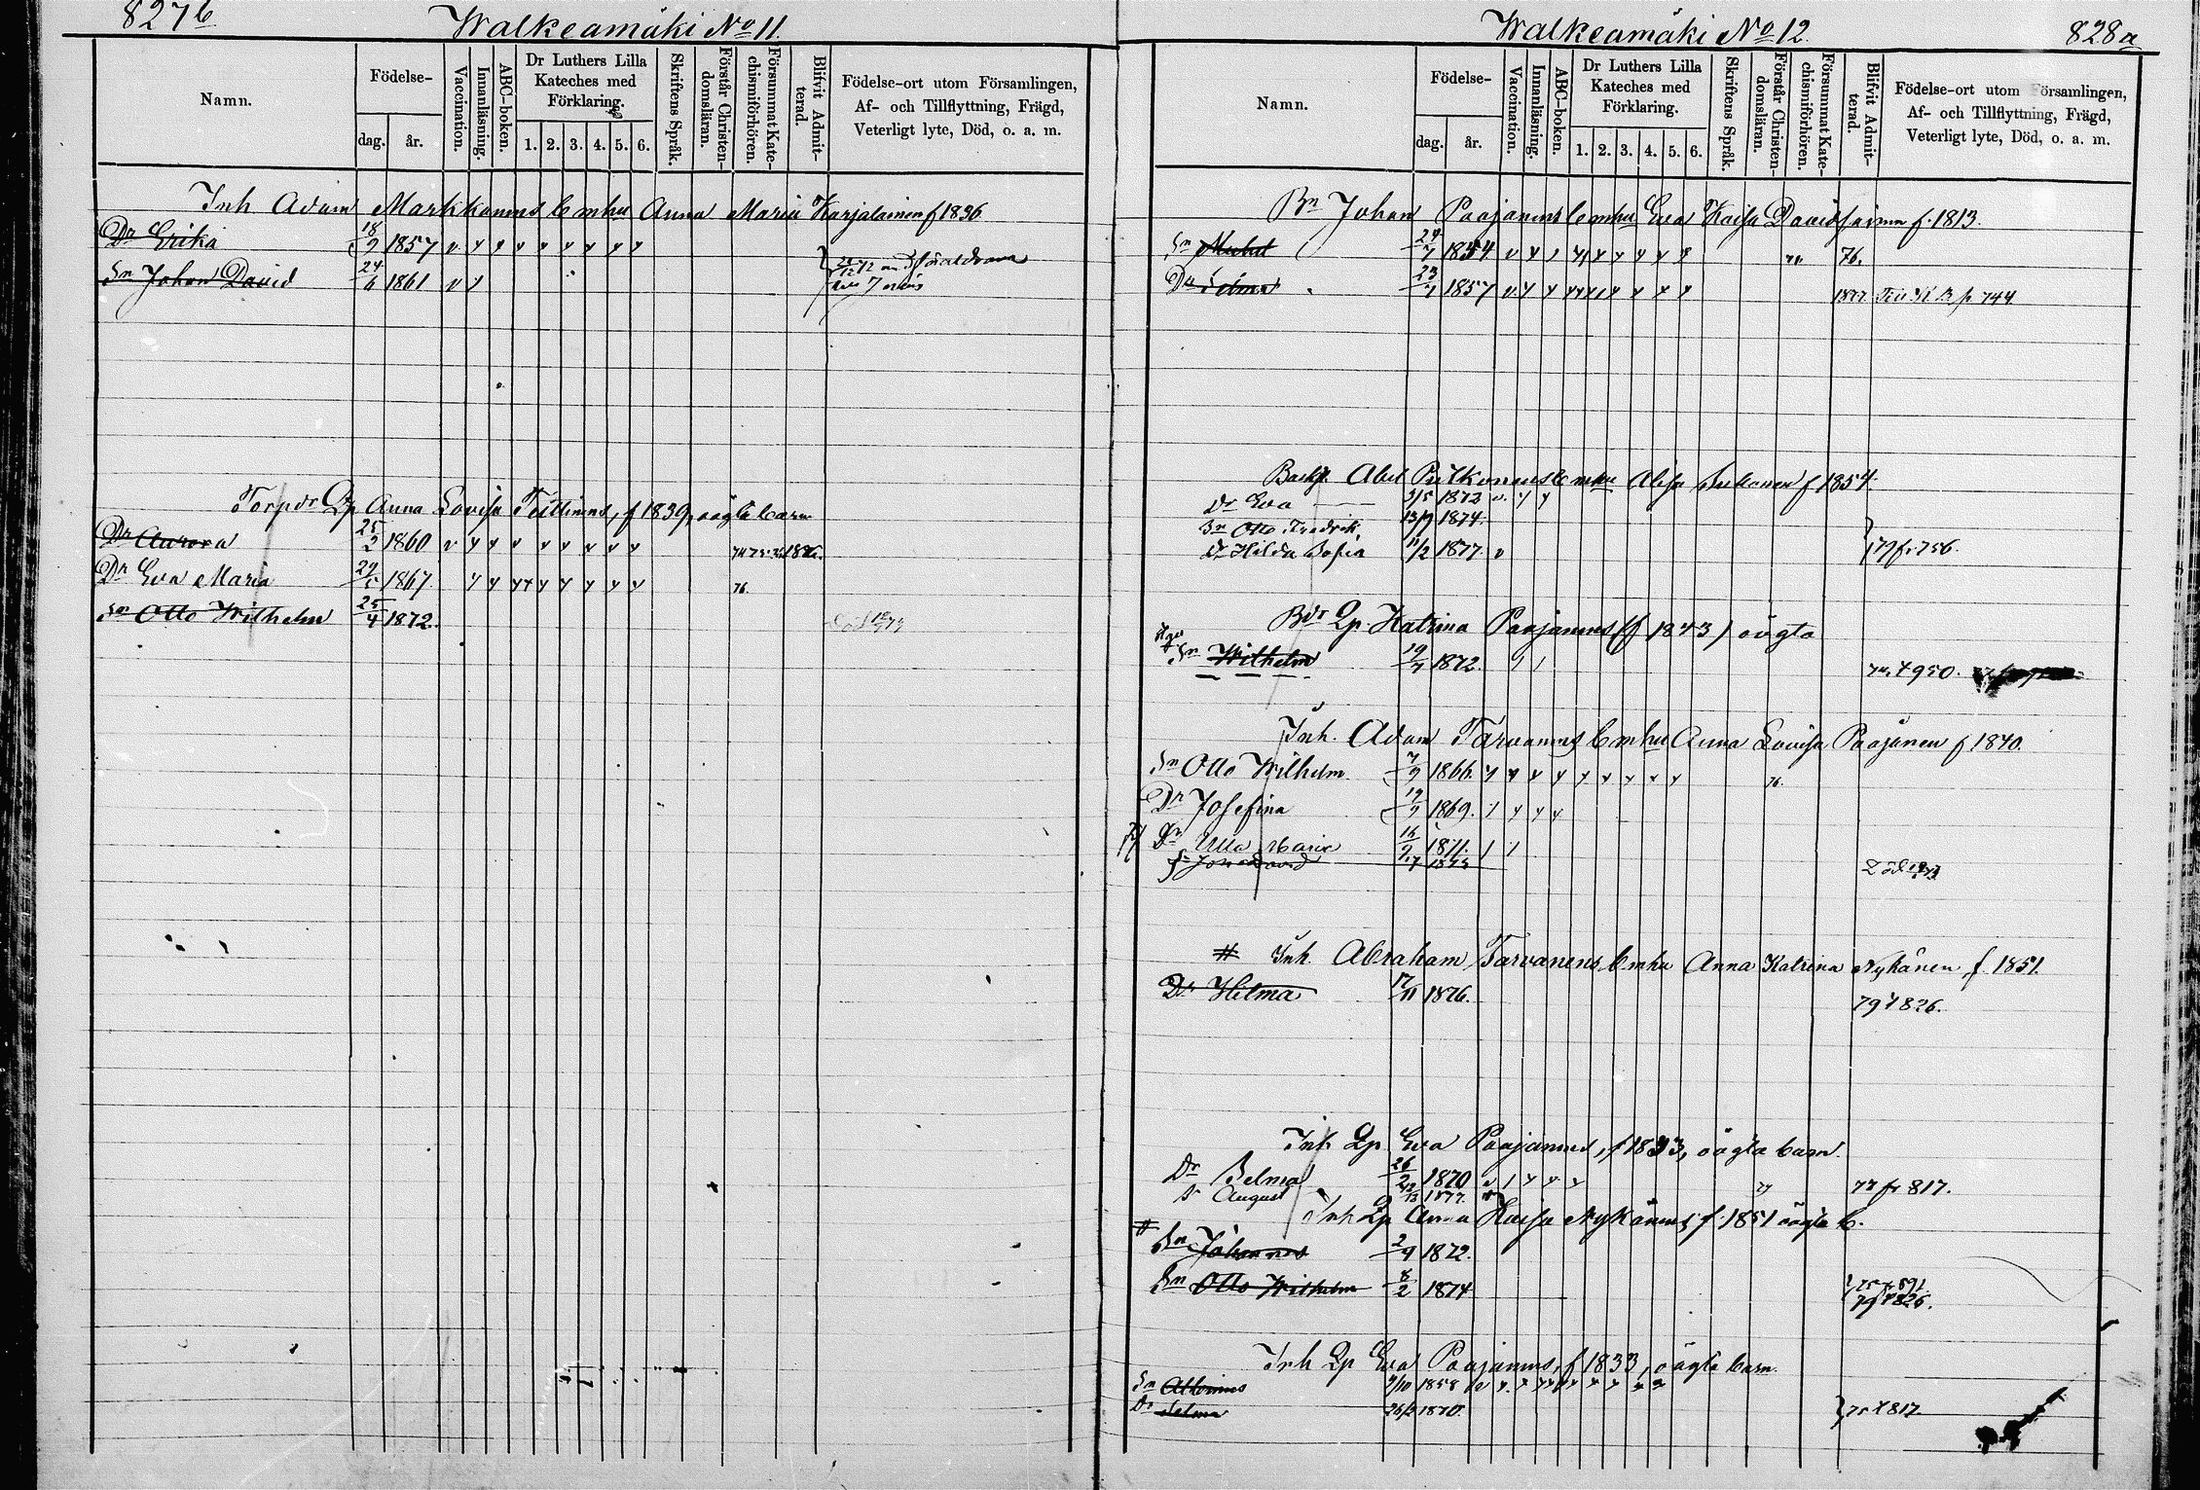 827b
Walkeamäki No 11.
Namn.
Födelse-
dag.
år.
Vaccination.
Innanläsning.
ABC-boken.
Dr Luthers Lilla
Kateches med
Förklaring.
1. 2. 3. 4. 5. 6.
Skriftens Språk.
Förstår Christen-
domsläran.
Försummat Kate-
chismiförhören.
Blifvit Admit-
terad.
Födelse-ort utom Församlingen,
Af- och Tillflyttning, Frägd,
Veterligt lyte, Död, o. a. m.
Inh. Adam Markkanens b m hu Anna Maria Karjalainen f 1836
Dr Erika 18/9 1857 v
Sn Johan David 24/6 1861 v
Torpdr Qp Anna Lovisa Tuttinens, f 1839, oägta barn
Dr Aurora 25/2 1860 v 1876.
Dr Eva Maria 29/5 1867. 76.
Sn Otto Wilhelm 25/4 1872.
Walkeamäki No 12.
828a
Namn.
Födelse-
dag.
år.
Vaccination.
Innanläsning.
ABC-boken.
Dr Luthers Lilla
Kateches med
Förklaring.
1. 2. 3. 4. 5. 6.
Skriftens Språk.
Förstår Christen-
domsläran.
Försummat Kate-
chismiförhören.
Blifvit Admit-
terad.
Födelse-ort utom Församlingen,
Af- och Tillflyttning, Frägd,
Veterligt lyte, Död, o. a. m.
Bn Johan Paajanens b m hu Eva Kaisa Davidsainen f. 1813.
Sn 24/7 1854 v 76.
Dr Selma 23/7 1857 v 1877. p 744
Abel Pulkonens b m hu f 1854.
Dr Eva 3/5 1873 v.
Sn Otto Fredrik 13/9 1874.
Dr Hilda Sofia 11/2 1877. v
79 fr 756.
Bdr Qp Katrina Paajanens (f 1843) oägta
Sn Wilhelm 19/7 1872. 950.
Inh. Adam Tarvanens b m hu Anna Lovisa Paajanen f 1840.
Sn Otto Wilhelm 7/9 1866. 76.
Dr Josefina 19/7 1869.
Dr Ulla Maria 16/9 1871.
# Inh. Abraham Tarvanens b m hu Anna Katrina Nykänen, f. 1851.
Dr Helma 17/11 1876. 79 t 826.
Inh Qp Eva Paajanens, f 1833, oägta barn.
Dr Selma 26/2 1870 v 77 fr 817.
Sn August 1877.
Inh Qp Anna Kaisa Nykänens f. 1851 oägta b.
# Sn Johannes 2/9 1872.
Sn Otto Wilhelm 8/2 1874
79 t 826.
Inh Qp Eva Paajanens, f 1833, oägta barn.
Sn Albinus 9/10 1858 v
Dr Selma 26/2 1870. 75 t 817.